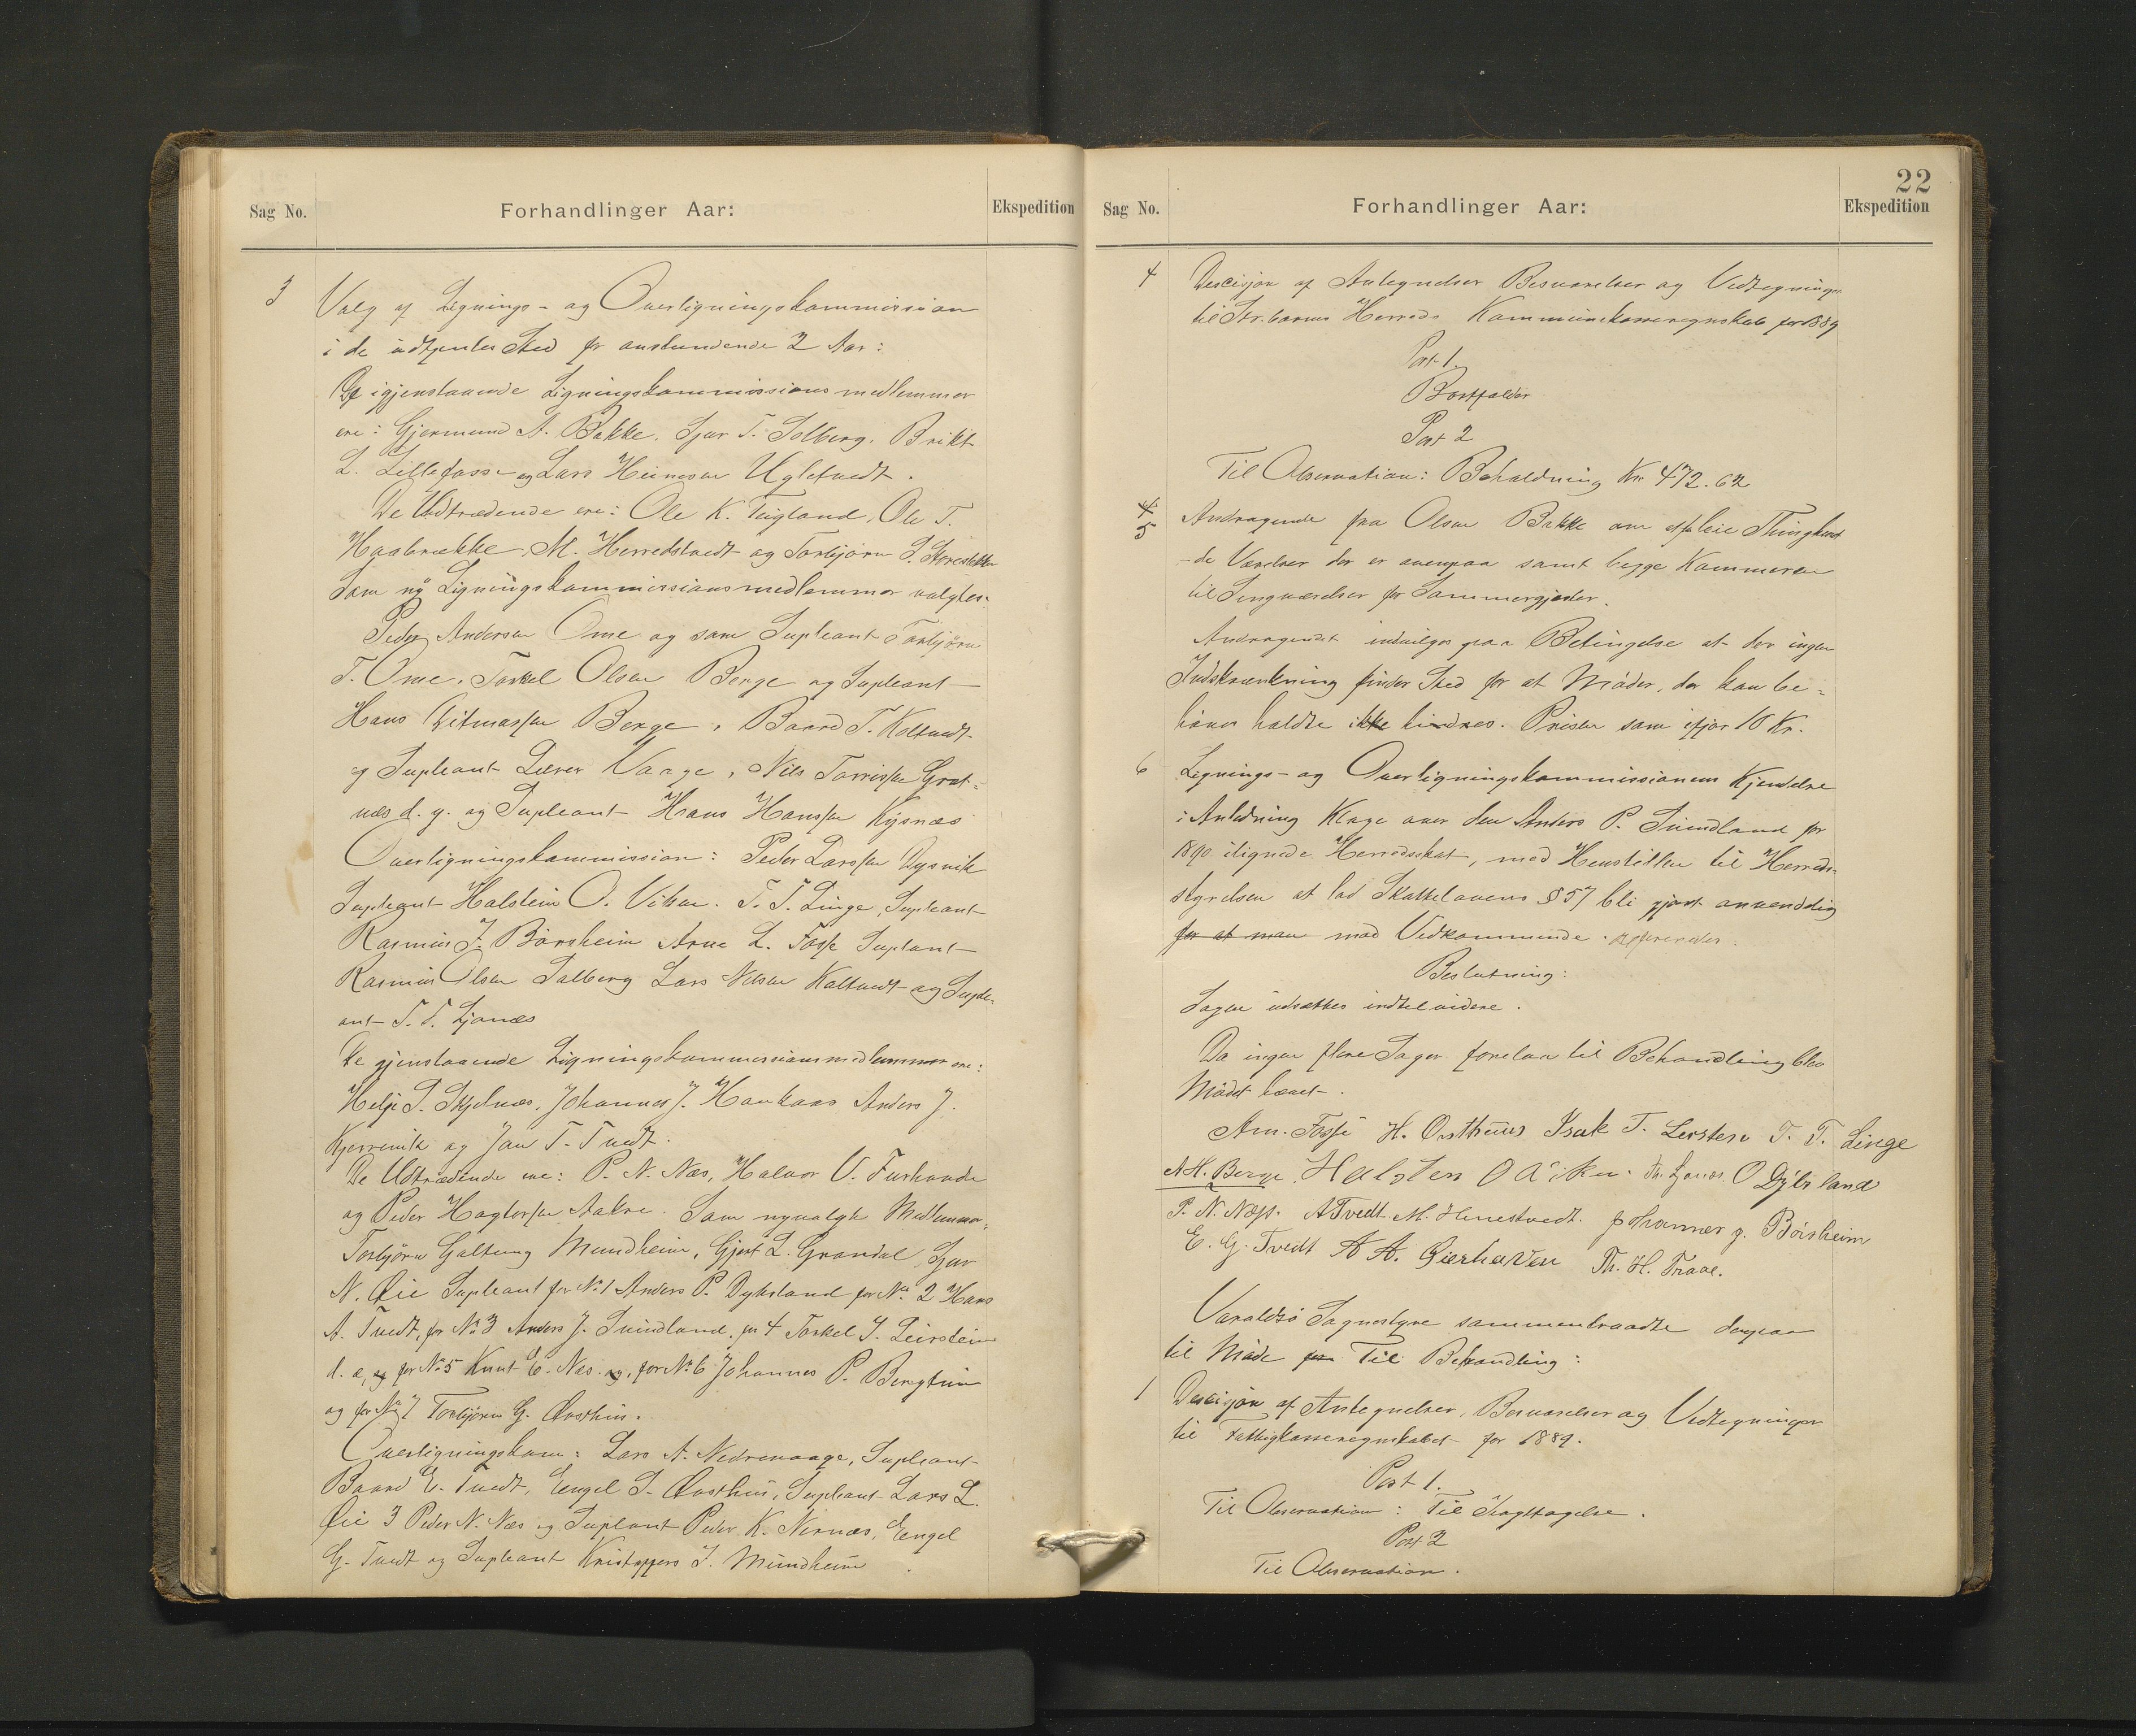 Sag No.
Forhandlinger Aar:
Ekspedition
3
Valg af Lignings- og Overligningskommission
i de udtrædendes Sted for anstundende 2 Aar:
De igjenstaaende Ligningskommissionsmedlemmer
ere: Gjermund A. Bakke. Sjur T. Solberg. Brikt
L. Lillefosse og Lars Heinesen Ugletvedt.
De Udtrædende ere: Ole K. Teigland, Ole T.
Haabrække, M. Herredstvedt og Torbjørn
Som ny Ligningskommissionsmedlemmer valgtes:
Peder Andersen Ome og som Supleant Torbjørn
T. Ome. Torkel Olsen Berge og Supleant
Hans Berge, Baard T. Koltvedt
og Supleant Lærer Vaage, Nils Torrissen Grot-
næs d. y. og Supleant Hans Hanssen Kysnæs
Overligningskommission: Peder Larssen Dysvik
Supleant Halstein O. Viken. T. T. Linge, Supleant
Rasmus J. Børsheim Arne L. Fosse Suplant
Rasmus Olsen Solberg Lars Nilsen Koltvedt og Suple-
ant T. T. Ljonæs
De gjenstaaende Ligningskommissionsmedlemmer ere:
Helje S. Skjelnæs, Johannes J. Haukaas Anders J.
Kjerrevik og Jan T. Tvedt.
De Udtrædende ere: P. N. Næs, Halvor V. Furhovde
og Peder Hagtorsen Aakre. Som nyvalgte Medlemmer,
Torbjørn Galtung Mundheim, Gjert L. Grondal, Sjur
N. Øie Supleant for No 1 Anders P. Dyksland for No 2 Hans
A. Tvedt, for No 3 Anders J. Svindland, for 4 Torkel J. Leirstein
d. e, og for No 5 Knut E. Næs og, for No 6 Johannes P. Bergtun
og for No 7 Torbjørn G. Østhus.
Overligningskom: Lars A. Nedrevaage, Supleant
Baard E. Tvedt, Engel S. Østhus, Supleant Lars L.
Øie 3 Peder N. Næs og Suplant Peder K. Nernæs, Engel
G. Tvedt og Supleant Kristoffers J. Mundheim.
22
Sag No.
Forhandlinger Aar:
Ekspedition
4
Descisjon af Antegnelser Besvarelser og Vedtegninger
til Strandebarms Herreds Kommunekasseregnskab for 1889
Post 1.
Bortfalder
Post 2
Til Observation: Beholdning Kr 472.62
4
5
Andragende fra Olsen Bakke om at leie Thinghuset
de Værelser der er ovenpaa samt begge Kammerene
til Sengværelser for Sommergjæster.
Andragendet indvilges paa Betingelse at der ingen
Indskrænkning finder Sted for at Møder, der kan be-
høves holdte ikke hindres. Prisen som ifjor 10 Kr.
6
Lignings- og Overligningskommissionens Kjendelse
i Anledning Klage over den Anders P. Svindland for
1890 ilignede Herredsskat, med Henstillen til Herreds-
styrelsen at lad Skattelovens § 57 bli gjort anvendelig
for at man mod Vedkommende. refereredes.
Beslutning:
Sagen udsættes indtil videre.
Da ingen flere Sager forelaa til Behandling blev
Mødet hævet.
Arn. Fosse H. Østhuus Isak T. Leirstein T. T. Linge
A H. Berge. Halsten O Viken. Th. Ljonæs. O Dyksland
P. N. Næss. A Tvedt M. Herrestvedt. Johannes J. Børsheim
E. G. Tvedt A A. Gierhaven Th. H. Traae.
Varaldsø Sognestyre sammentraadte derpaa
til Møde for Til Behandling:
1
Descisjon af Antegnelser, Besvarelser og Vedtegninger
til Fattigkasseregnskabet for 1889.
Post 1.
Til Observation: Til Iagttagelse.
Post 2
Til Observation.